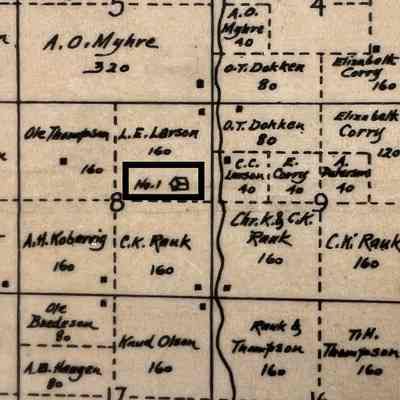 5
4
A.O. Myhre
320
A.O.
Myhre
40
O.T. Dokken
80
Elizabeth
Corry
160
Ole Thompson
160
L.E. Larson
160
No. 1
O.T. Dokken
80
Elizabeth
Corry
120
C.C.
Larson
40
E.
Corry
40
A.
40
8
9
A.H. Kobervig
160
C.K. Rauk
160
Chr. K. & C.K.
Rauk
160
C.K. Rauk
160
Ole
Bredeson
80
A.B. Haugen
80
Knud Olson
160
Rauk &
Thompson
160
T.H.
Thompson
160
17
16